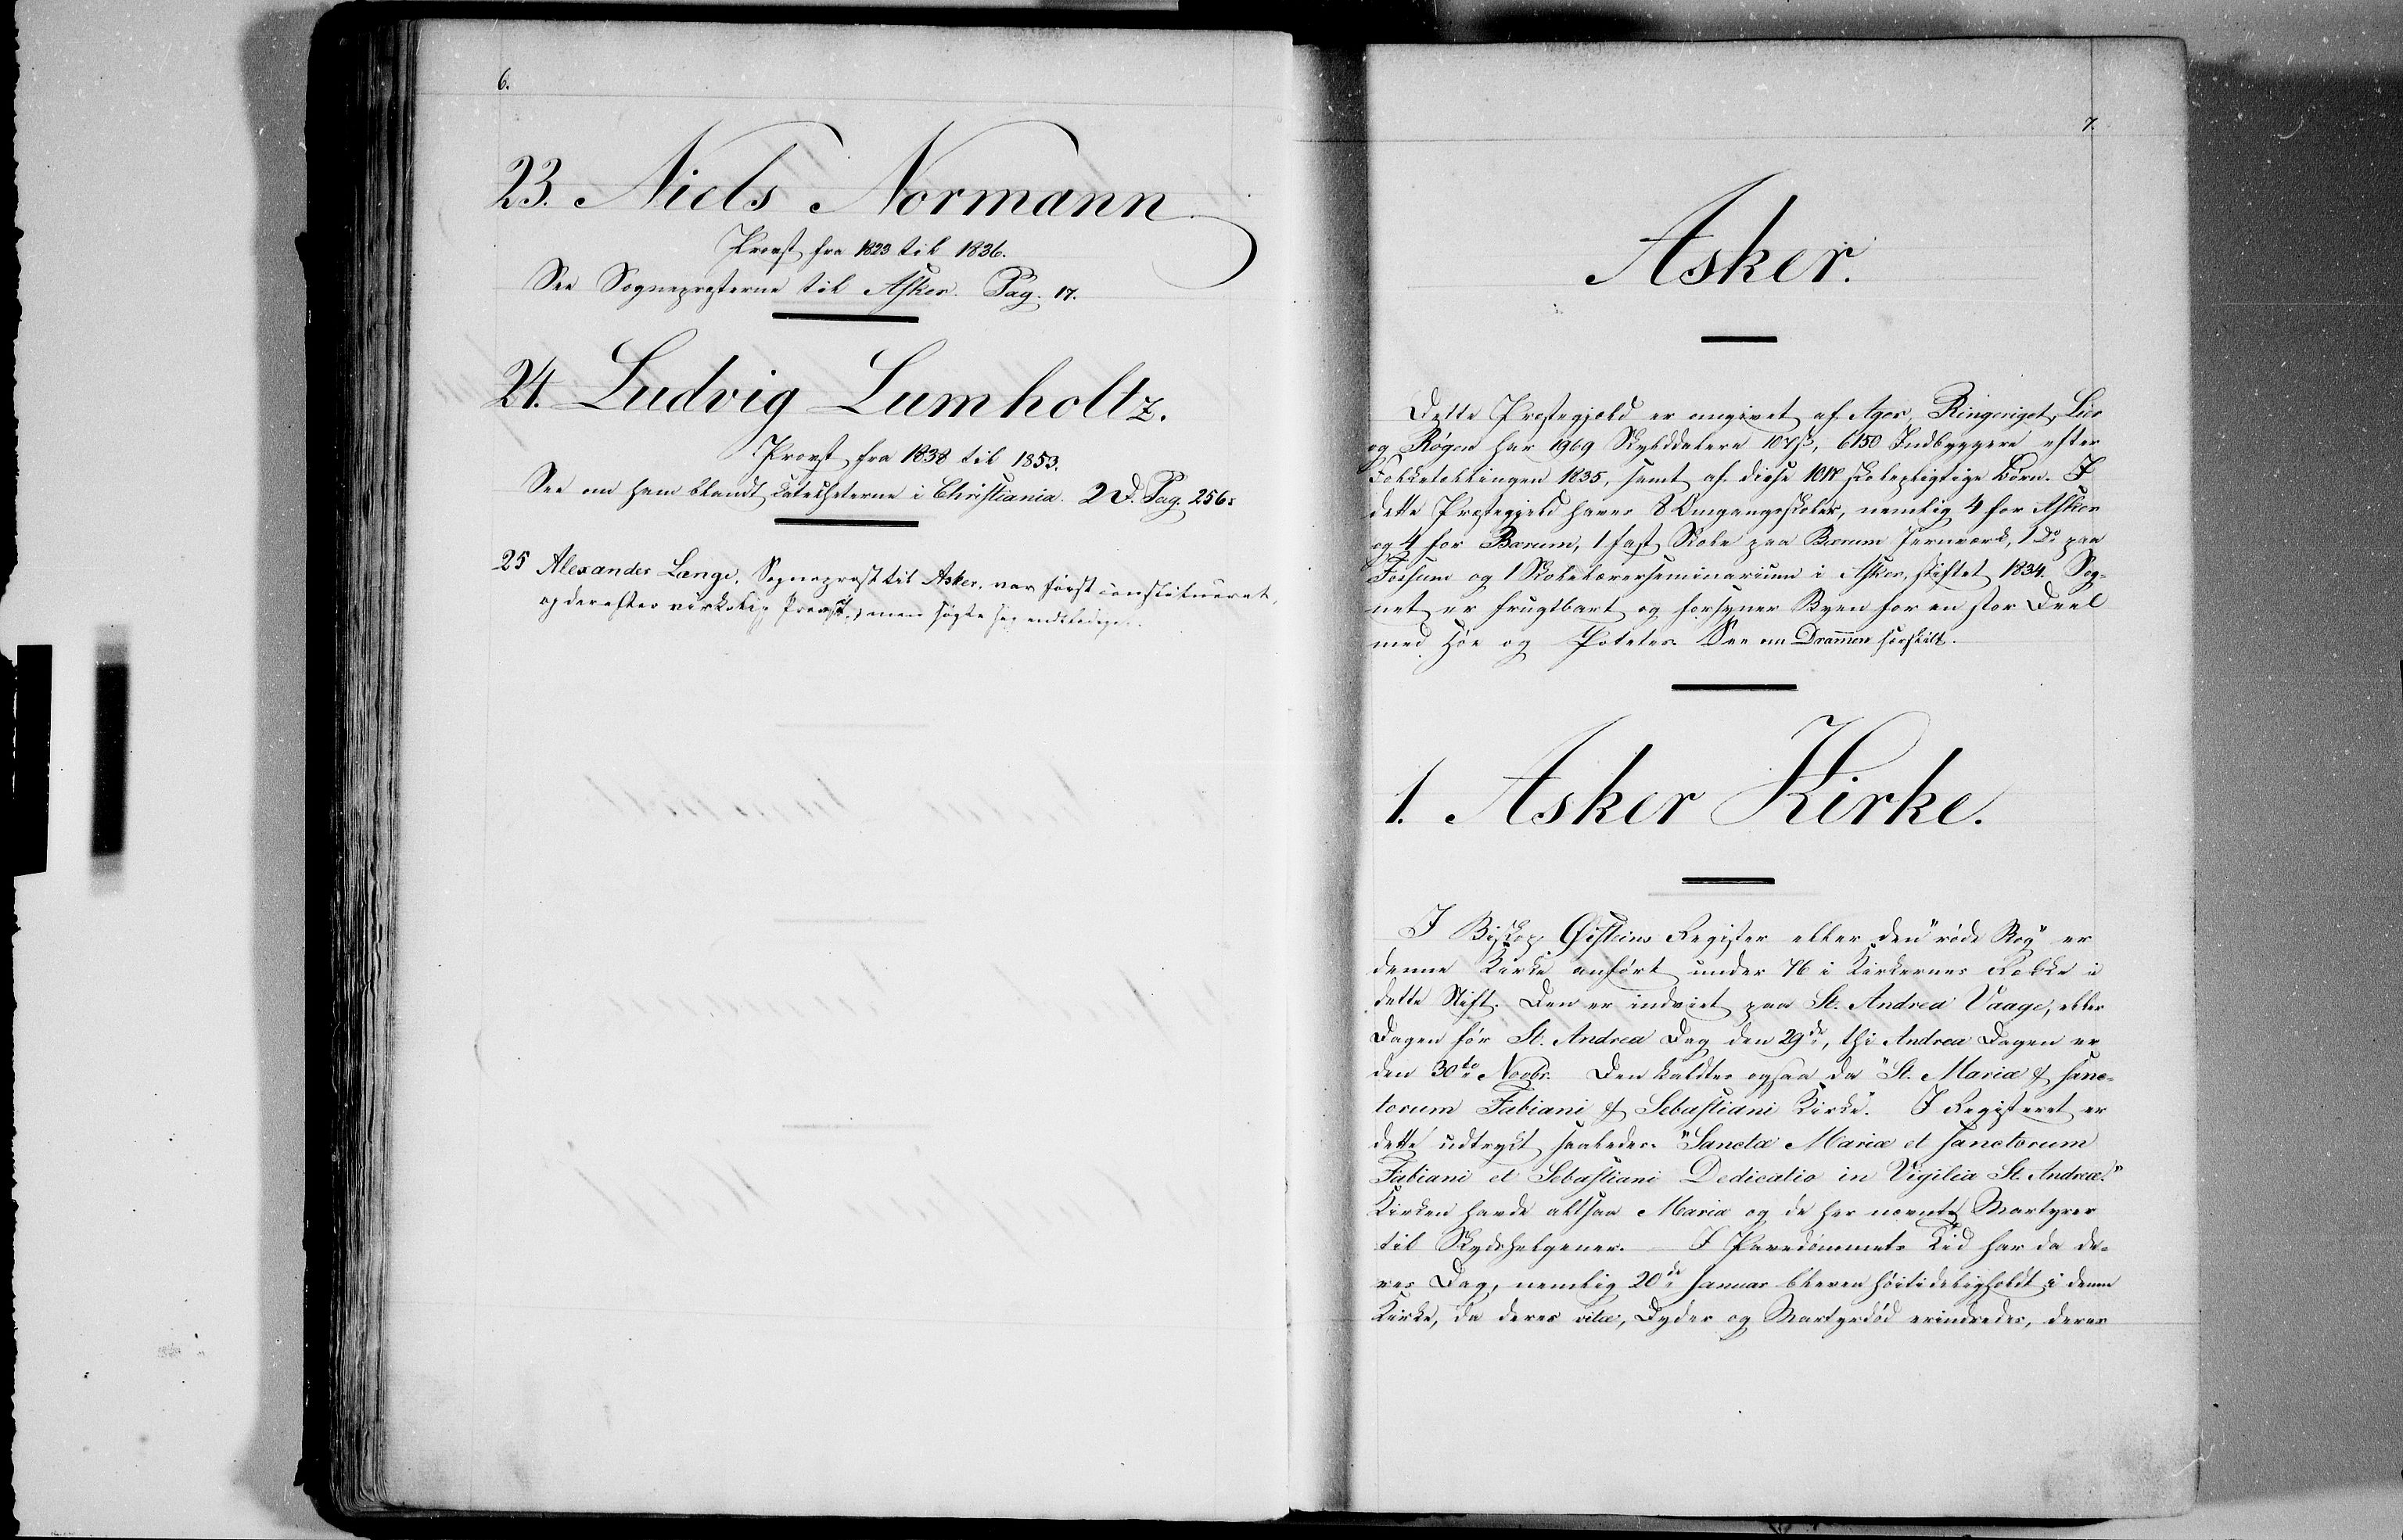 6.
23. Niels Normann
Provst fra 1823 til 1836.
See Sognepresterne til Asker. Pag. 17.
24. Ludvig Lumholtz.
Provst fra 1838 til 1853.
See om ham blandt Catecheterne i Christiania. 2 D. Pag. 256.
25 Alexander Lange, Sogneprest til Asker, var først constitueret,
og derefter virkelig Provst, men søgte sig entlediget.
7.
Asker.
Dette Præstegjæld er omgivet af Ager, Ringeriget, Lier
og Røgen har 1969 Skylddalere 107 ß, 6150 Indbyggere efter
Folketellingen 1835, samt af disse 1017 skolepligtige Børn. I
dette Præstegjeld haves 8 Omgangsskoler, nemlig 4 for Asker
og 4 for Bærum, 1 fast Skole paa Bærum Jernværk, 1 Do paa
Fossum og 1 Skolelærerseminarium i Asker, stiftet 1834. Sog-
net er frugtbart og forsyner Byen for en stor Deel
med Høe og Poteter. See om Dramen særskilt.
1. Asker Kirke.
I Biskop Øisteins Register eller den "røde Bog" er
denne Kirke anført under 76 i Kirkernes Række i
dette Stift. Den er indviet paa St. Andreæ Vaage, eller
Dagen før St. Andreæ Dag den 29de, thi Andreæ Dagen er
den 30te Novbr. Den kaldtes ogsaa da "St. Mariæ & sanc-
torum Fabiani & Sebastiani Kirke". I Registeret er
dette udtrykt saaledes: "Sanctæ Mariæ et sanctorum
Fabiani et Sebastiani Dedicatio in Vigilia St. Andreæ."
Kirken havde altsaa Maria og de her nævnte Martyrer
til Skydshelgener. – I Pavedømmets Tid har da de-
res Dag, nemlig 20de Januar bleven høitideligholdt i denne
Kirke, da deres vitæ, Dyder og Martyrdød erindredes, deres